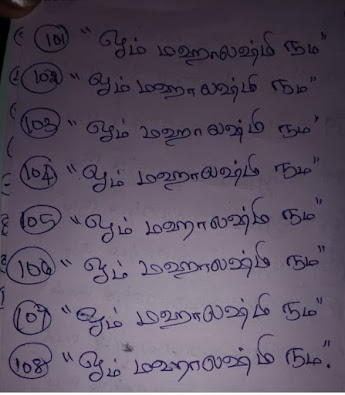 101 " ஓம் மஹாலஷ்மி நம"
102 " ஓம் மஹாலஷ்மி நம"
103 " ஓம் மஹாலஷ்மி நம"
104 " ஓம் மஹாலஷ்மி நம"
105 " ஓம் மஹாலஷ்மி நம"
106 " ஓம் மஹாலஷ்மி நம"
107 " ஓம் மஹாலஷ்மி நம"
108 " ஓம் மஹாலஷ்மி நம".